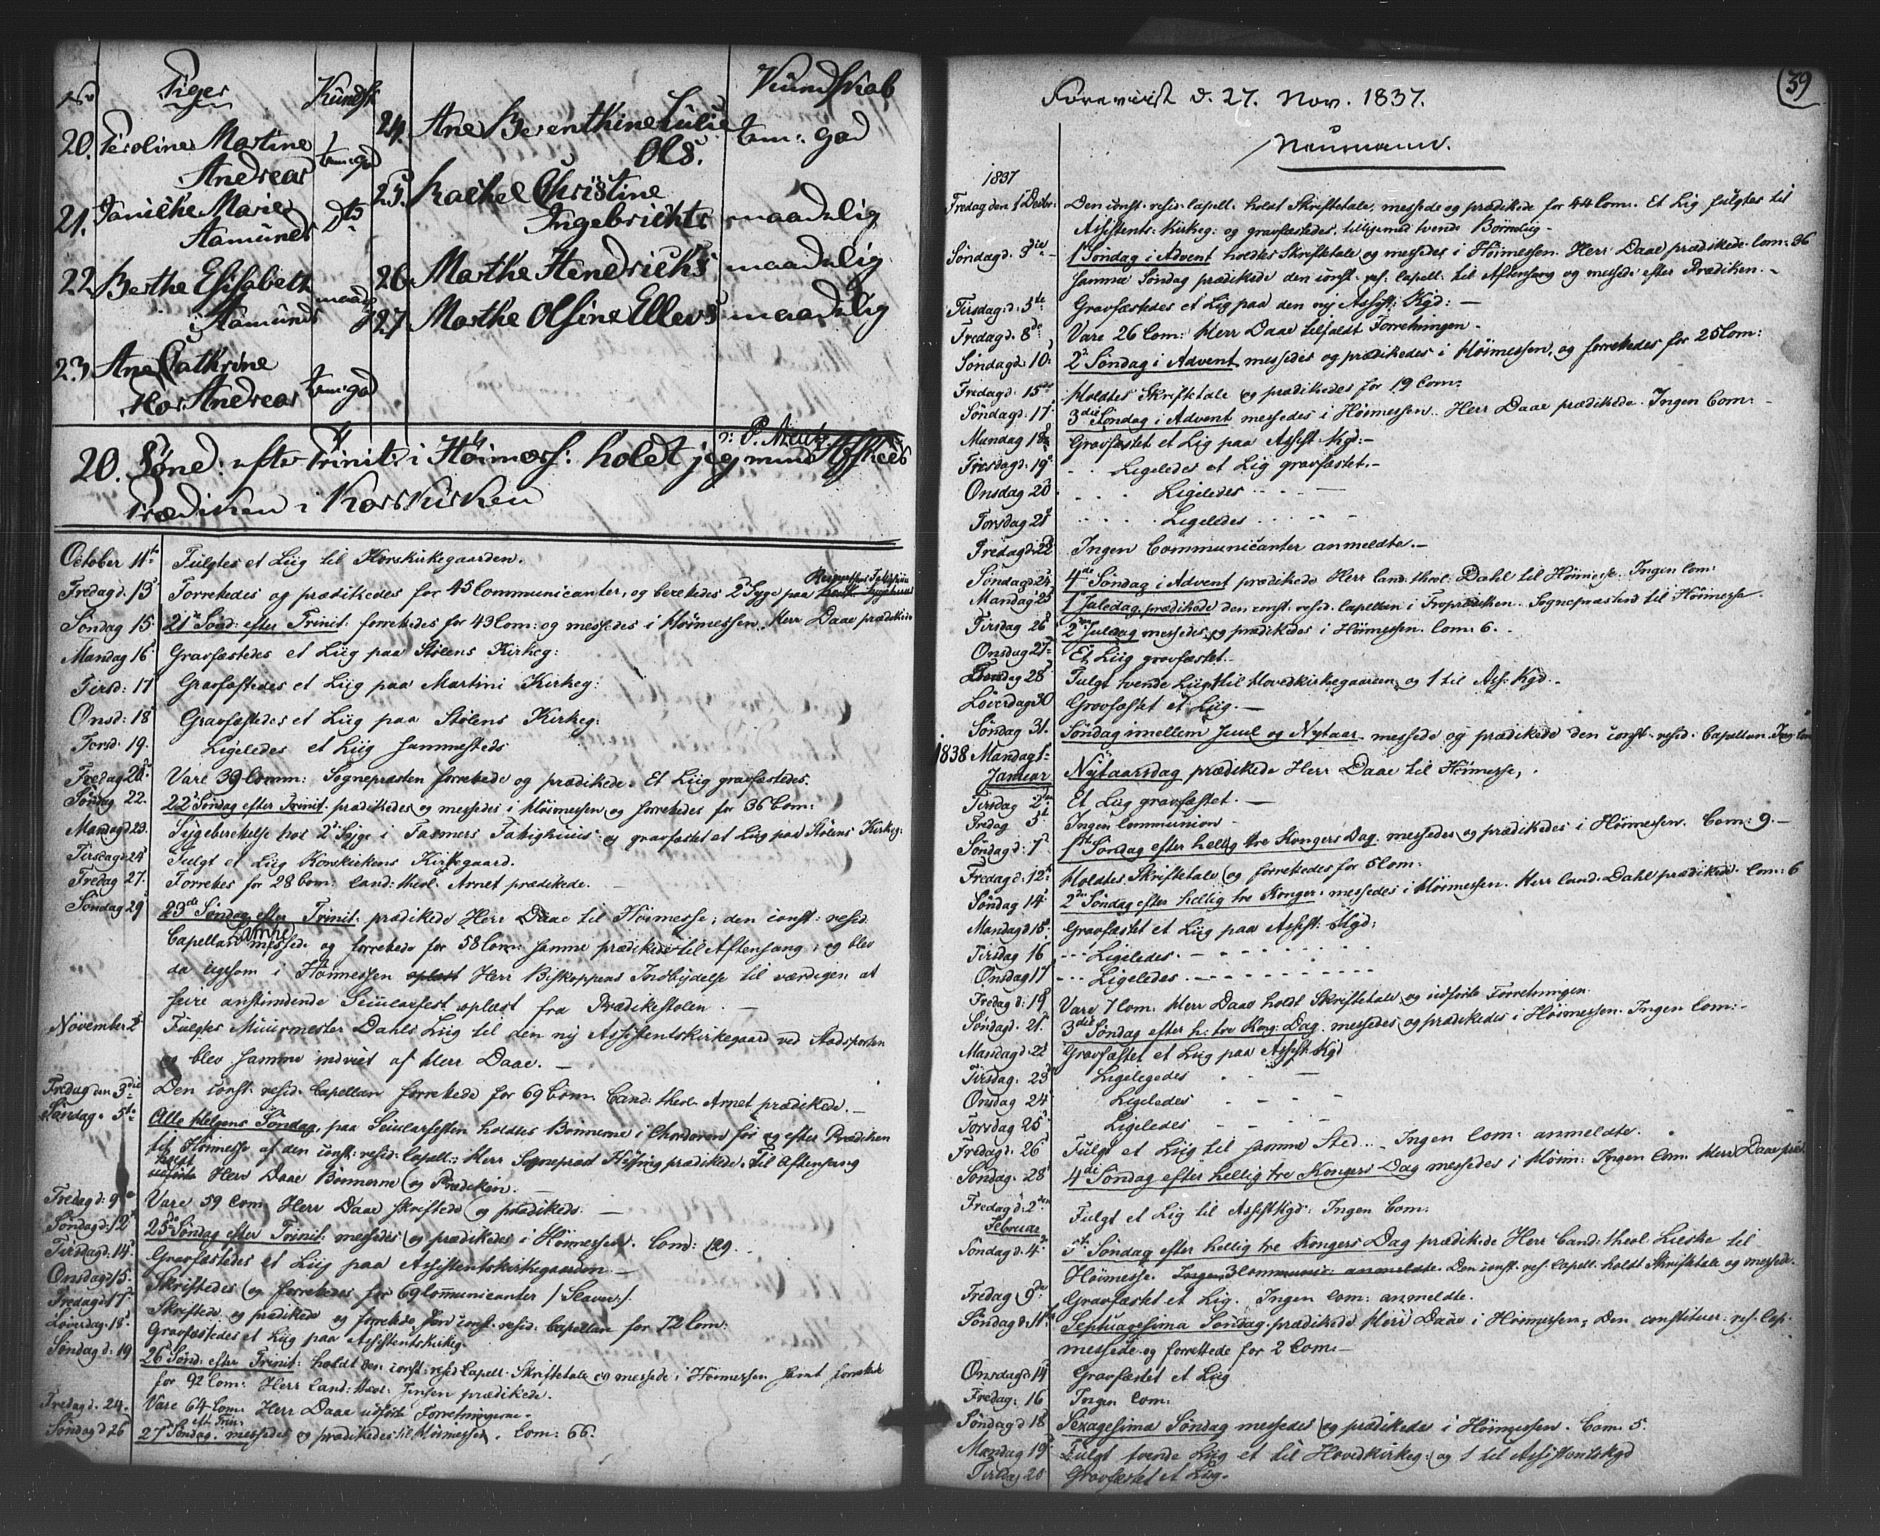 No Piger Kundsk
20. Peroline Martine
Andreas tem: god
21. Janikke Marie
Aamunds Do
22. Berthe Elisabeth
Aamunds maadel
23. Ane Cathrine
Andreas tem: god
Kundskab
24. Ane Berenthine Lulie
Ols. tem: god
25. Rachel Christine
Ingebrichts maadelig
26. Marthe Hendrichs maadelig
27. Marthe Olsine Ellevs maadelig
20. Sønd: efter Trinit: i Høimess: holdt jeg min Afskeds
Prædiken i Korskirken
October 11te Fulgtes et Liig til Korskirkegaarden.
Fredag d. 13 Forrettedes og prædikedes for 45 Communicanter, og berettedes 2de Syge paa
Søndag 15 21de Sønd: efter Trinit. forrettedes for 49 Com: og messedes i Høimessen. Herr Daae prædikede
Mandag 16 Gravfæstedes et Liig paa Stølens Kirkeg:
Tirsd: 17 Gravfæstedes et Liig paa Martini Kirkeg:
Onsd: 18 Gravfæstedes et Liig paa Stølens Kirkeg:
Torsd. 19. Ligeledes et Liig sammesteds
Fredag 20 Vare 39 Comm: Sognepræsten forrettede og prædikede. Et Liig gravfæstedes.
Søndag 22. 22de Søndag efter Trinit. prædikedes og messedes i Høimessen og forrettedes for 36 Com:
Mandag d 23. Sygeberettelse hos 2de Syge i Farmers Fattighuus og gravfæstet et Liig paa Stølens Kirkeg:
Tirsdag d. 24 Fulgt et Liig Korskirkens Kirkegaard.
Fredag 27. Forrettes for 28 Com: Cand: theol. Arnet prædikede.
Søndag 29 23de Søndag efter Trinit: prædikede Herr Daae til Høimesse; den const: resid.
Capellan messede og forrettede for 58 Com: Samme prædikede til Aftensang; og blev
da ligesom i Høimessen Herr Biskoppens Indbydelse til værdigen at
feire anstundende Seculærfest oplæst fra Prædikestolen.
November 2 Fulgtes Muurmester Dahls Liig til den ny Assistentskirkegaard ved Stadsporten
og blev samme indviet af Herr Daae.
Fredag den 3die Den const: resid: Capellan forrettede for 69 Com. Cand: theol. Arnet prædikede.
Søndag. 5te Alle Helgens Søndag, paa Seculærfesten holdtes Bønnerne i Chordøren før og efter Prædiken
til Høimesse af den const: resid: Capell:; Herr Sognepræst prædikede. Til Aftensang
holdt Herr Daae Bønnerne og Prædiken.
Fredag d: 9 Vare 59 Com. Herr Daae skriftede og prædikede.
Søndag d: 12 25de Søndag efter Trinit: messedes og prædikedes i Høimessen. Com: 129.
Tirsdag d: 14 Gravfæstedes et Liig paa Assistentskirkegaarden
Onsdag d 15. Skriftedes og forrettedes for 69 Communicanter /: Slaver :/
Fredag d: 17 Skriftede og prædikede og forrettede den const. resid: Capellan for 72 Com:
Løverdag. 18 Gravfæstedes et Liig paa Assistentskirkeg:
Søndag d: 19 26 Sønd: efter Trinit: holdt den const: resid Capell: Skriftetale og messede i Høimessen samt forrettede
for 92 Com: Herr Cand: theol: Jensen prædikede.
Fredag d. 24. Vare 64 Com. Herr Daae udførte Forretningerne.
Søndag d 26 27 Søndag efter Trin: messedes og prædikedes til Høimessen. Com: 66.
39
Foreviist d. 27. Nov. 1837.
Neumann.
1837
Fredag den 1 Decbr: Den const. resid. Capell. holdt Skriftetale, messede og prædikede for 44 Com. Et Lig fulgtes til
Assistents Kirkeg: og gravfæstedes tilligemed tvende Børnelig
Søndag d. 3die 1 Søndag i Advent holdtes Skriftetale og messedes i Høimessen. Herr Daae prædikede. Com: 36
Samme Søndag prædikede den const: res. Capell. til Aftensang og messede efter Prædiken.
Tirsdag d. 5te Gravfæstedes et Lig paa den ny Assist: Kgd:
Fredag d. 8de Vare 26 Com: Herr Daae tilfaldt Forretningen.
Søndag d. 10. 2de Søndag i Advent messedes og prædikedes i Høimessen, og forrettedes for 25 Com:
Fredag d. 15de Holdtes Skriftetale og prædikedes for 19 Com:
Søndag d. 17 3die Søndag i Advent messedes i Høimessen. Herr Daae prædikede. Ingen Com:
Mandag 18 Gravfæstet et Lig paa Assist. Kgd:
Tirsdag d. 19 Ligeledes et Lig gravfæstet.
Onsdag 20 Ligeledes
Torsdag 21 Ligeledes
Fredag d: 22 Ingen Communicanter anmeldte.
Søndag d: 24 4de Søndag i Advent prædikede Herr Cand. theol: Dahl til Høimesse. Ingen Com:
Mandag 25 1 Juledag prædikede den const. resid. Capellan i Froprædiken. Sognepræsten til Høimesse
Tirsdag 26 2den Juledag messedes og prædikedes i Høimessen. Com: 6.
Onsdag 27 Et Liig gravfæstet.
Torsdag 28 Fulgt tvende Liig til Hovedkirkegaarden og 1 til Ass: Kgd.
Løverdag 30 Gravfæstet et Liig.
Søndag 31. Søndag imellem Juul og Nytaar messede og prædikede den const. resid. Capellan. Ing: Com
1838 Mandag 1
Januar Nytaarsdag prædikede Herr Daae til Høimesse,
Tirsdag 2den Et Liig gravfæstet.
Fredag 5te Ingen Communion
Søndag d: 7 1ste Søndag efter hellig tre Kongers Dag messedes og prædikedes i Høimessen. Com: 9.
Fredag d: 12 Holdtes Skriftetale og forrettedes for 6 Com:
Søndag 14 2den Søndag efter hellig tre Konger messedes i Høimessen. Herr Cand. Dahl prædikede. Com: 6
Mandag 15 Gravfæstet et Liig paa Assist: Kgd:
Tirsdag 16 Ligeledes.
Onsdag 17 Ligeledes
Fredag d: 19 Vare 7 Com. Herr Daae holdt Skriftetale og udførte Forretningen.
Søndag d: 21. 3die Søndag efter h. tre Kong: Dag. messedes og prædikedes i Høimessen. Ingen Com:
Mandag 22 Gravfæstet et Liig paa Assist: Kgd
Tirsdag. 23 Ligelegedes
Onsdag 24 Ligeledes
Torsdag 25 Ligeledes
Fredag d: 26 Fulgt et Liig til samme Sted. Ingen Com: anmeldte.
Søndag. 28 4de Søndag efter hellig tre Kongers Dag messedes i Høim: Ingen Com. Herr Daae præd.
Fredag d: 2den
Februar Fulgt et Lig til Assistkgd: Ingen Com:
Søndag d: 4 5te Søndag efter hellig tre Kongers Dag prædikede Herr Cand: theol: Lieske til
Høimesse. Ingen 3 Communic: anmeldte. Den const: res: Capell: holdt Skriftetale og messede.
Fredag 9de Gravfæstet et Lig. Ingen Com: anmeldte.
Søndag d: 11 Septuagesima Søndag prædikede Herr Daae i Høimessen; Den constituer: res. Cap.
messede og forrettede for 2 Com:
Onsdag d 14 Gravfæstet et Liig
Fredag. 16 Ingen Com:
Søndag d 18 Sexagesima Søndag messedes og prædikedes i Høimessen. Com: 5.
Mandag 19 Fulgt tvende Liig et til Hovedkirkeg: og 1 til Assistentskgd
Tirsdag 20 Gravfæstet et Liig.